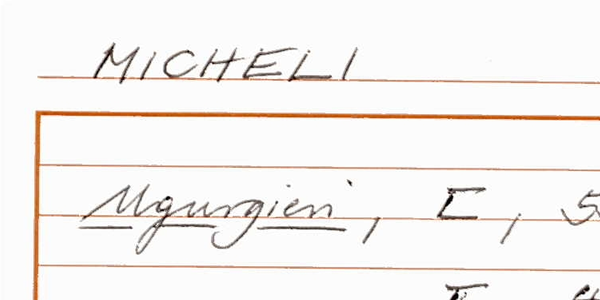 MICHELI
Ugurgieri, I, 5
I